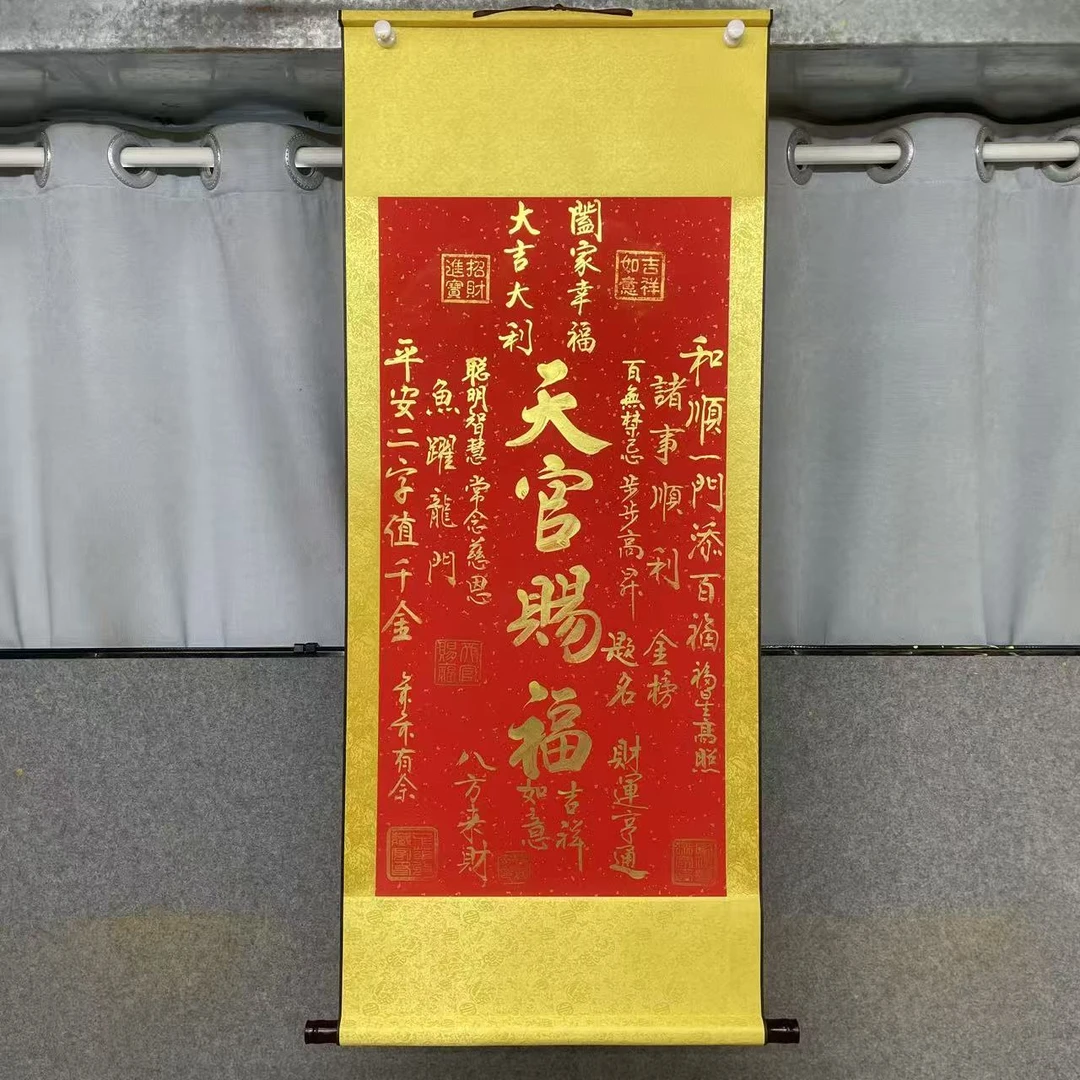 闔家幸福
大吉大利
吉祥如意
招財進寶
和順一門添百福
福星高照
諸事順利
金榜題名
百無禁忌
步步高昇
財運亨通
天官賜福
吉祥如意
聰明智慧
常念慈恩
八方来財
魚躍龍門
平安二字值千金
年年有余
天官賜福